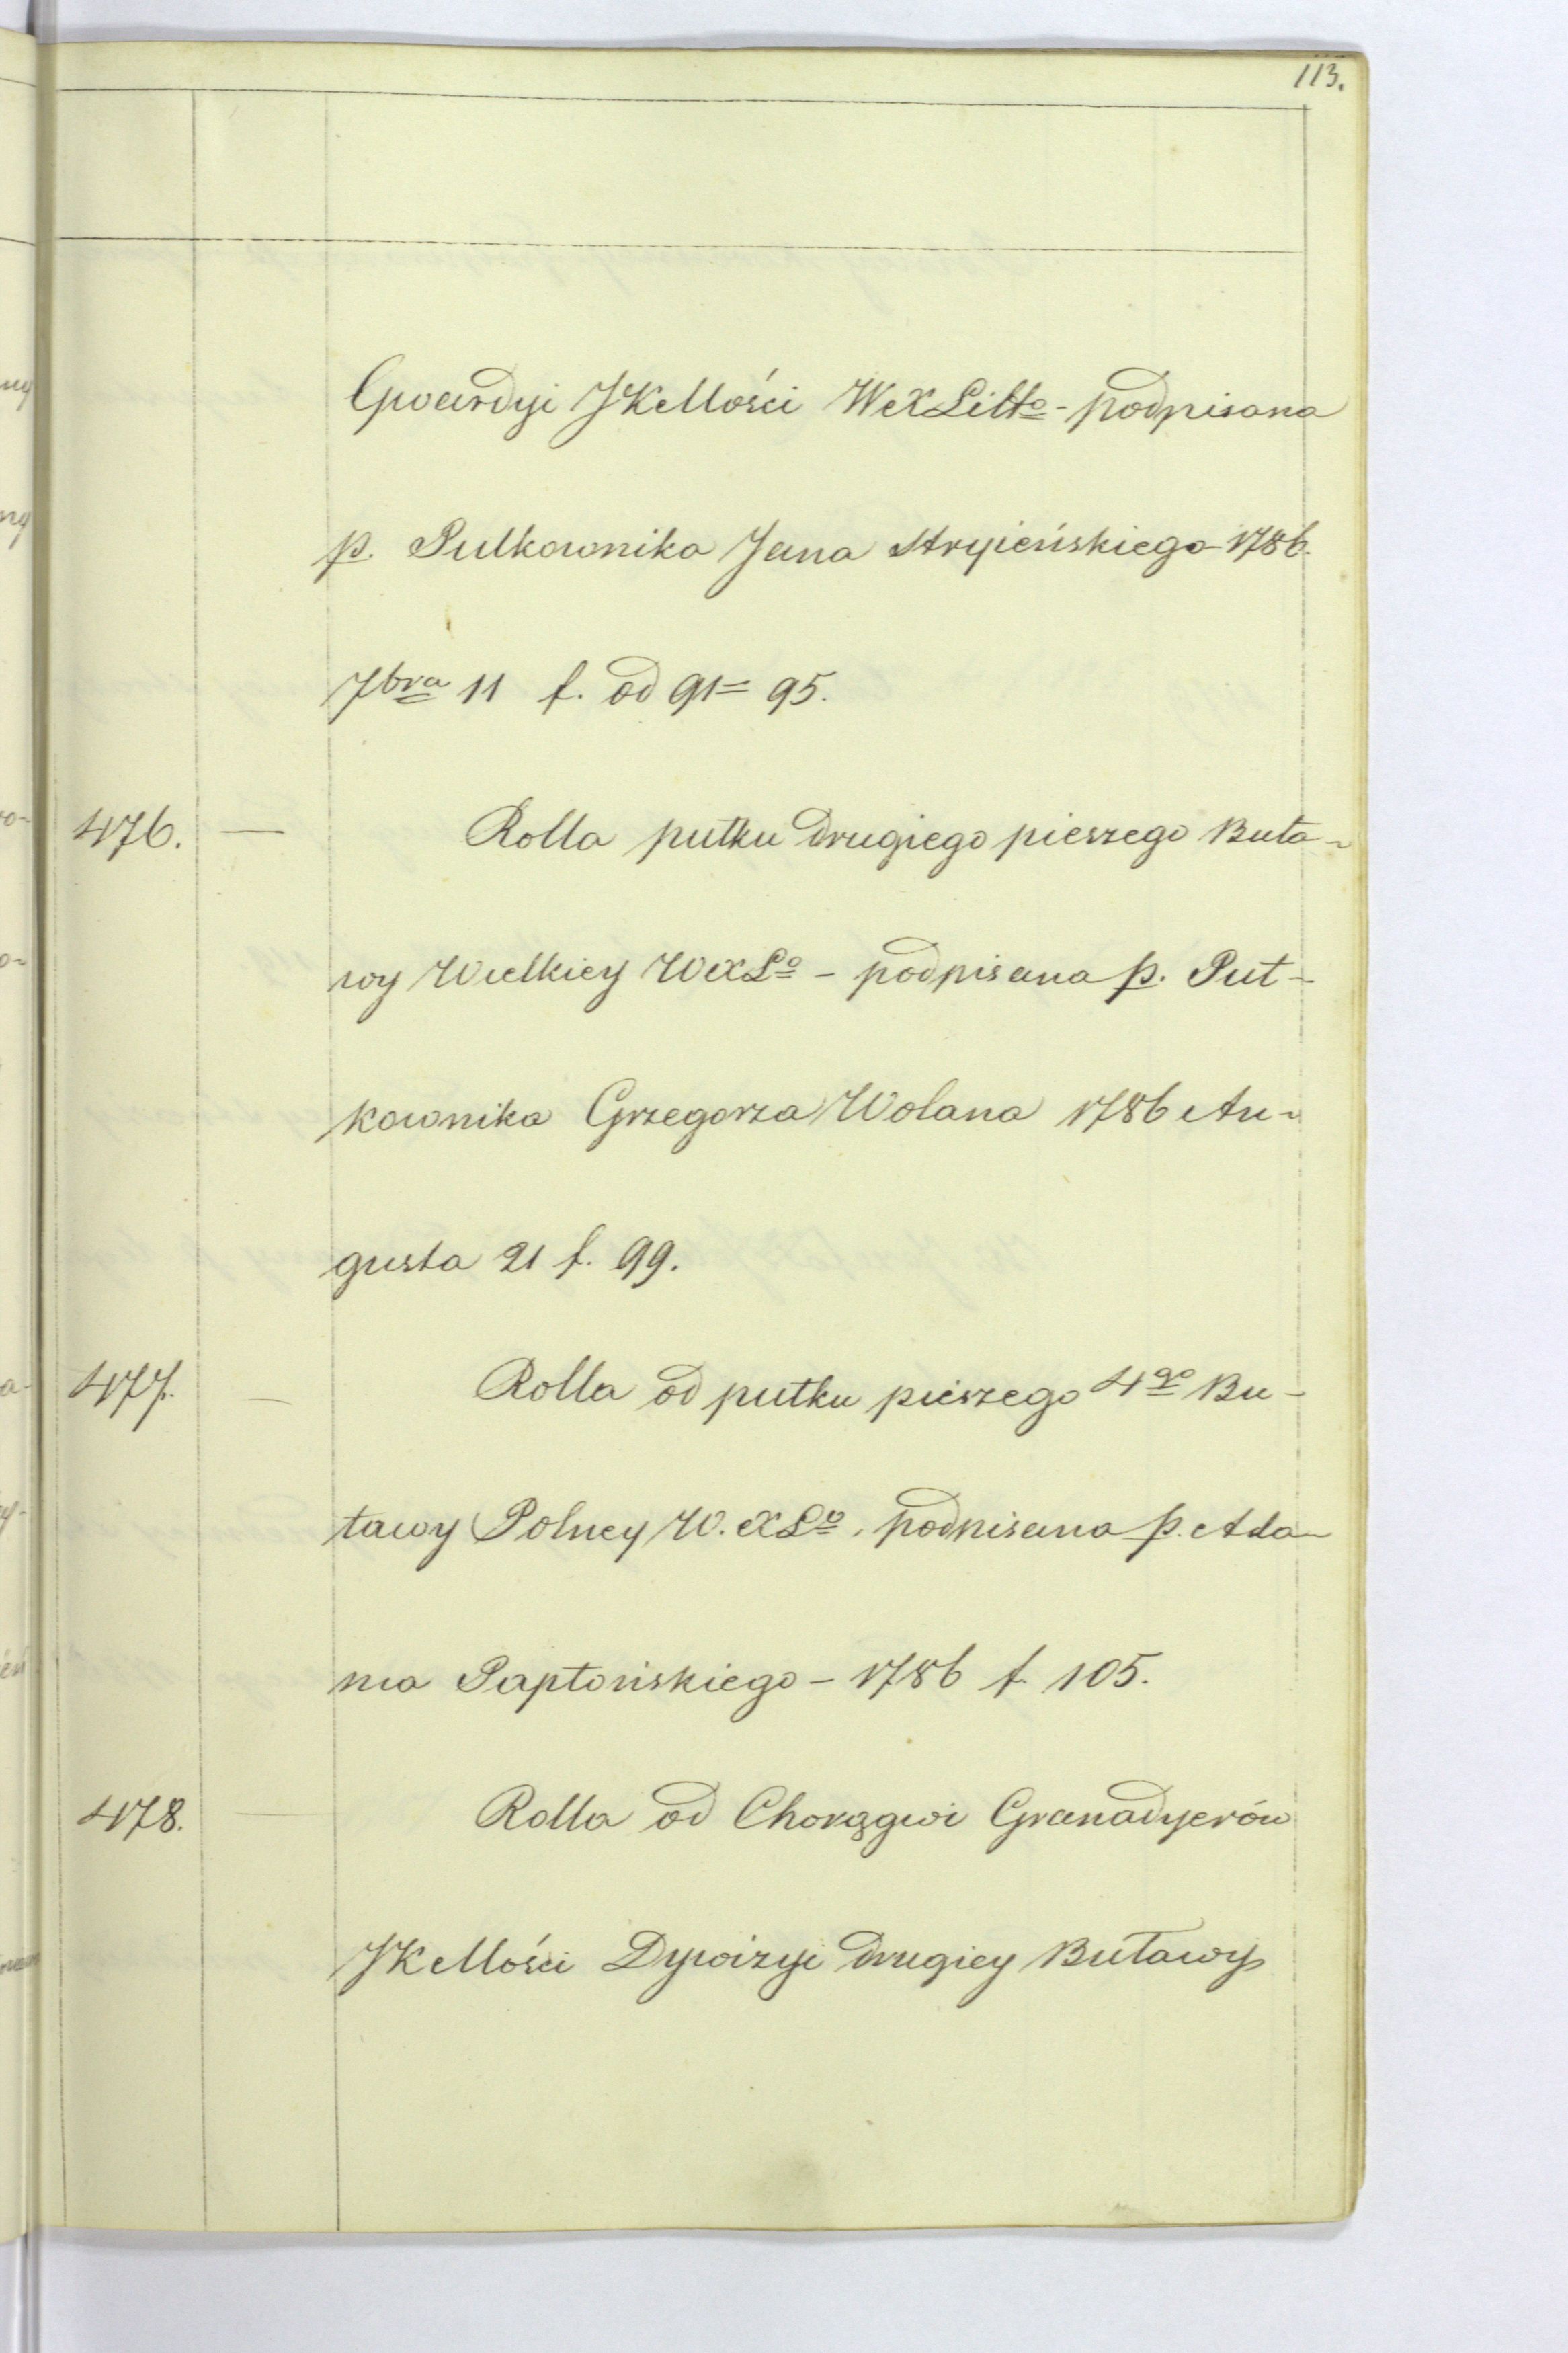 113.
Gwardyi JKMości WXLitto - podpisana
p. Pulkownika Jana Stryieńskiego - 1786.
7bra 11 f. od 91 = 95.
476. — Rolla pułku drugiego pieszego Buła-
wy Wielkiey WXLo - podpisana p. Puł-
kownika Grzegorza Wolana 1786 Au-
gusta 21 f. 99.
477. — Rolla od pułku pieszego 4go Bu-
ławy Polney W.XLo. podpisana p. Ada-
ma Paptońskiego - 1786 f. 105.
478. — Rolla od Chorągwi Granadyerów
JKMości Dywizyi drugiey Buławy